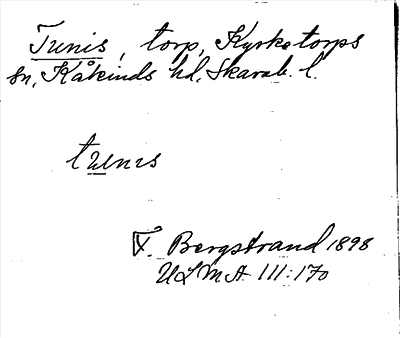 Tunis, torp, Kyrketorps
sn, Kåkinds hd, Skarab. l.
tunis
F. Bergstrand 1898
ULMA 111:170